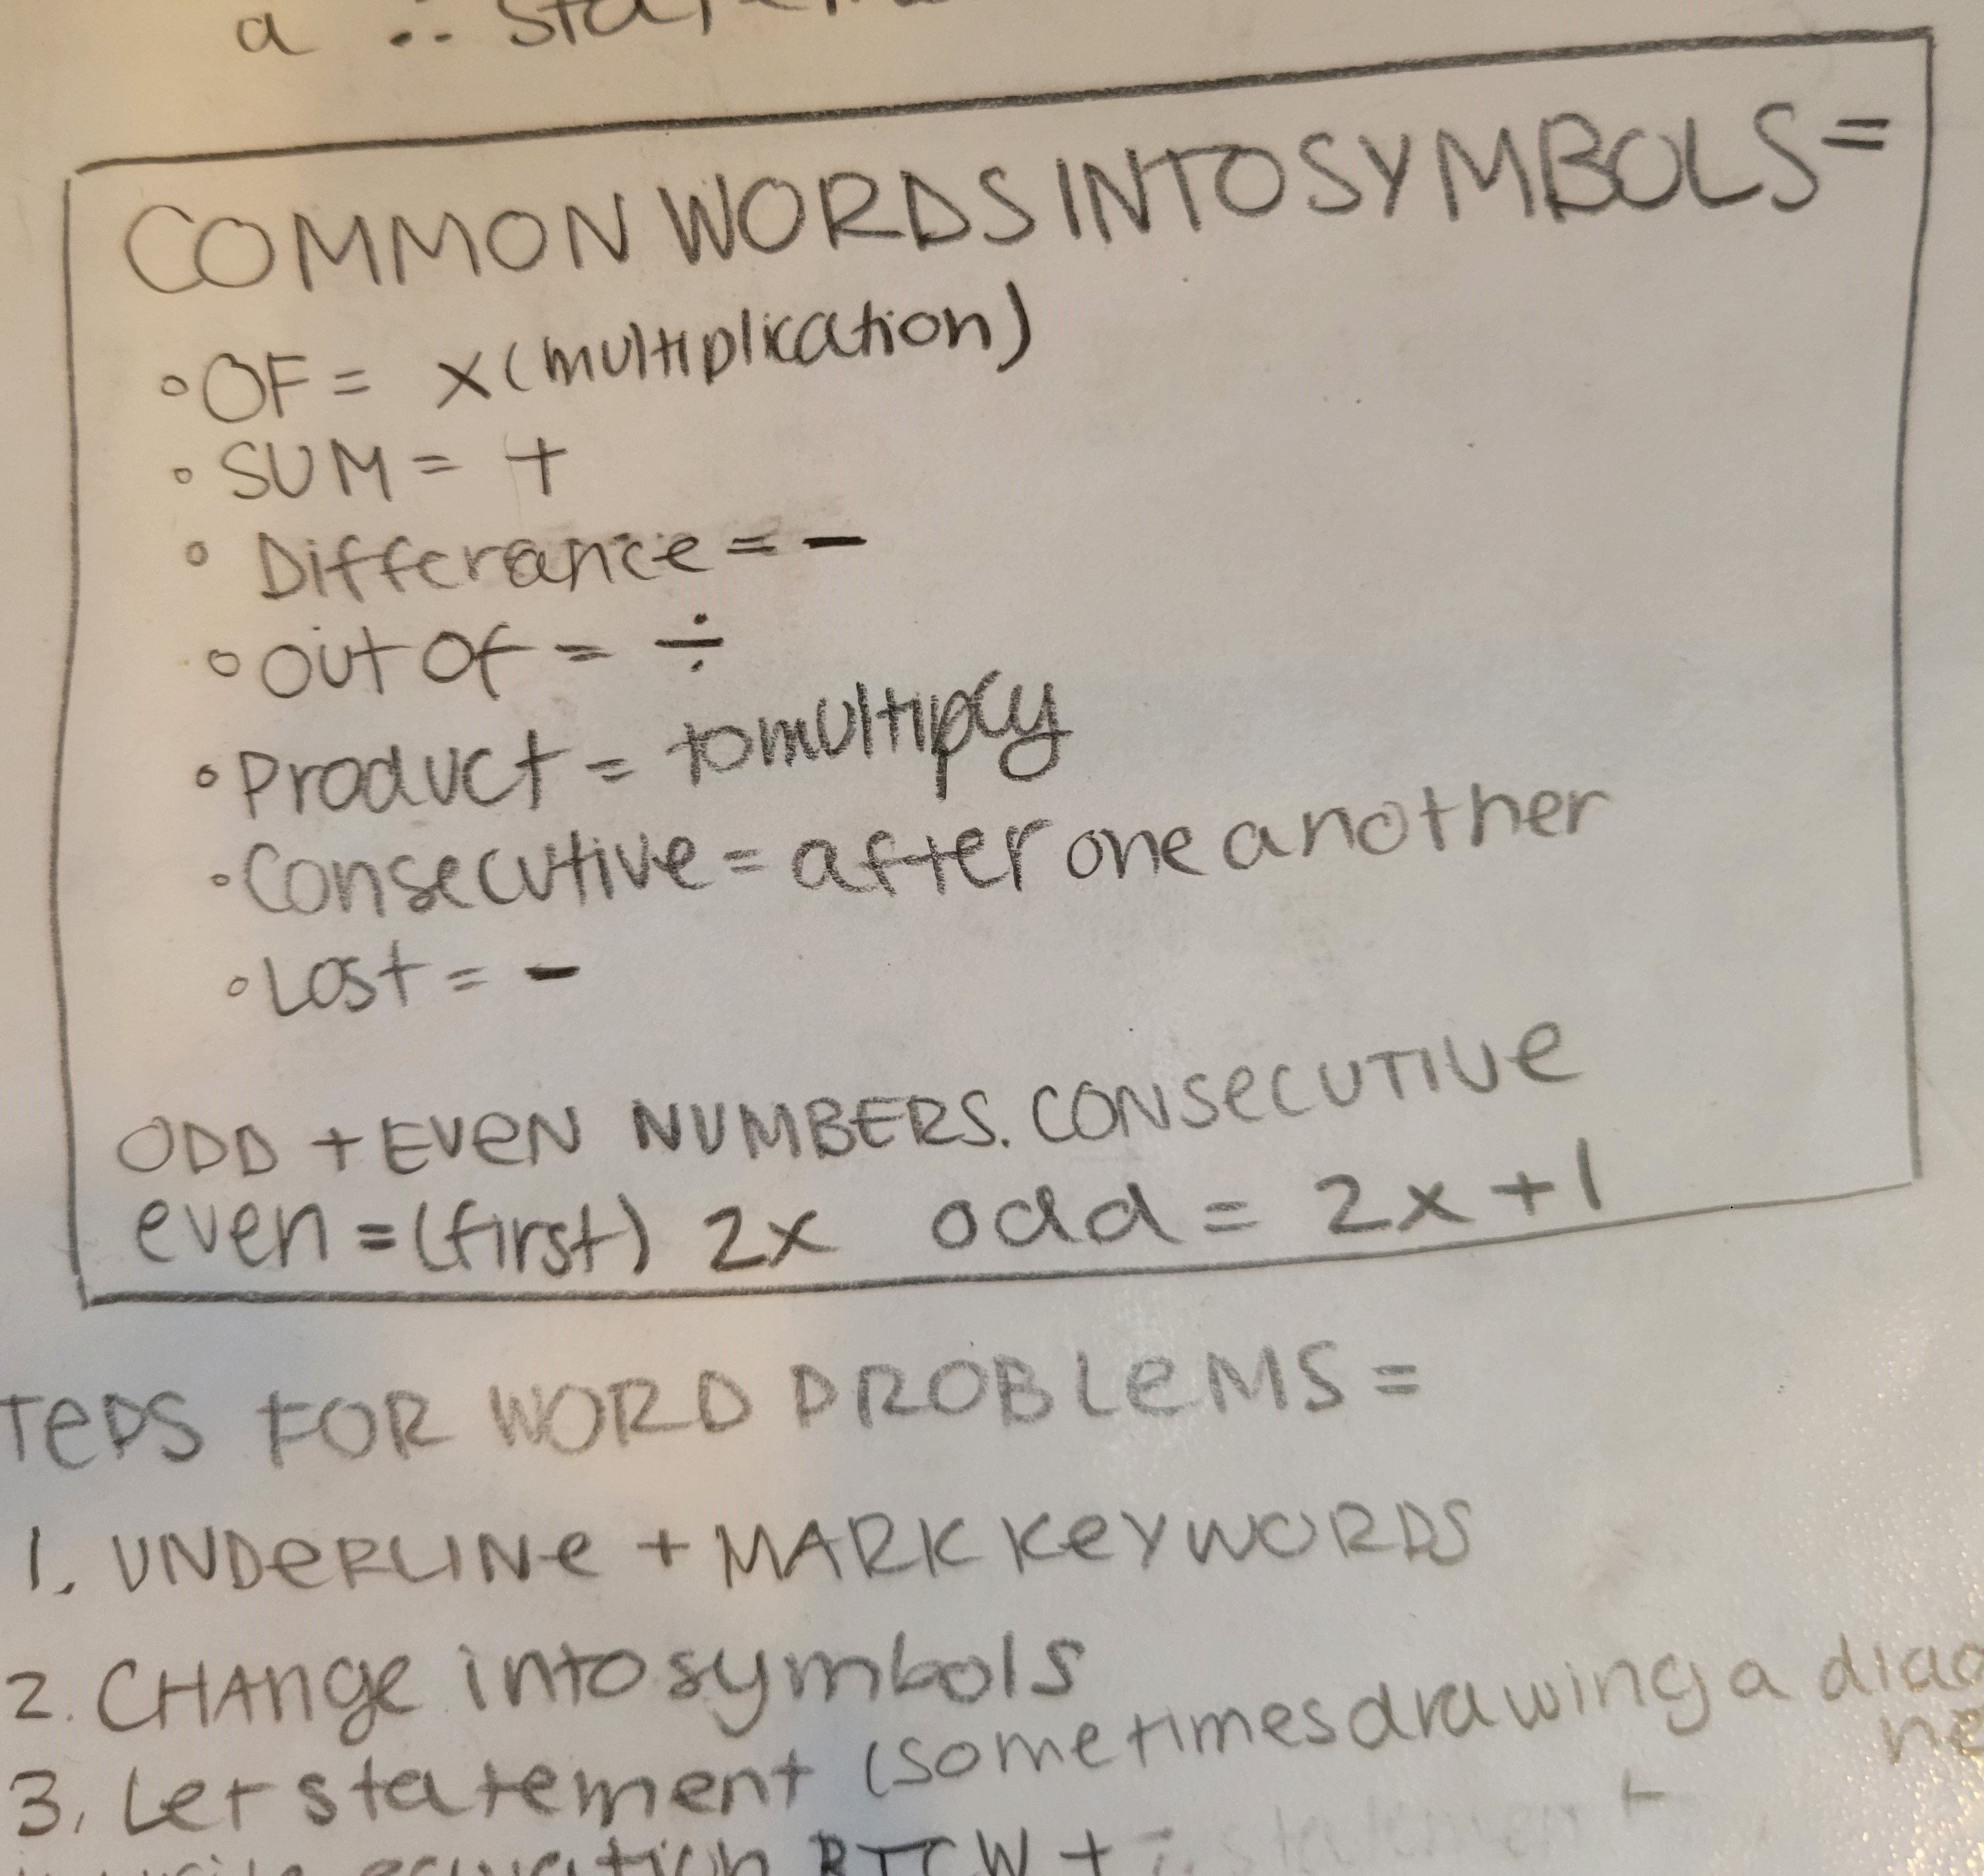 a ∴
COMMON WORDS INTO SYMBOLS =
◦ OF = x (multiplication)
◦ SUM = +
◦ Differance = -
◦ out of = ÷
◦ Product = to multiply
◦ Consecutive = after one another
◦ Lost = -
ODD + EVEN NUMBERS. CONSECUTIVE
even = (first) 2x odd = 2x + 1
TEPS FOR WORD PROBLEMS =
1. UNDERLINE + MARK KEY WORDS
2. CHAnge into symbols
3. Let statement (sometimes drawing a diag
ne
equation BTCW + ∴ statement